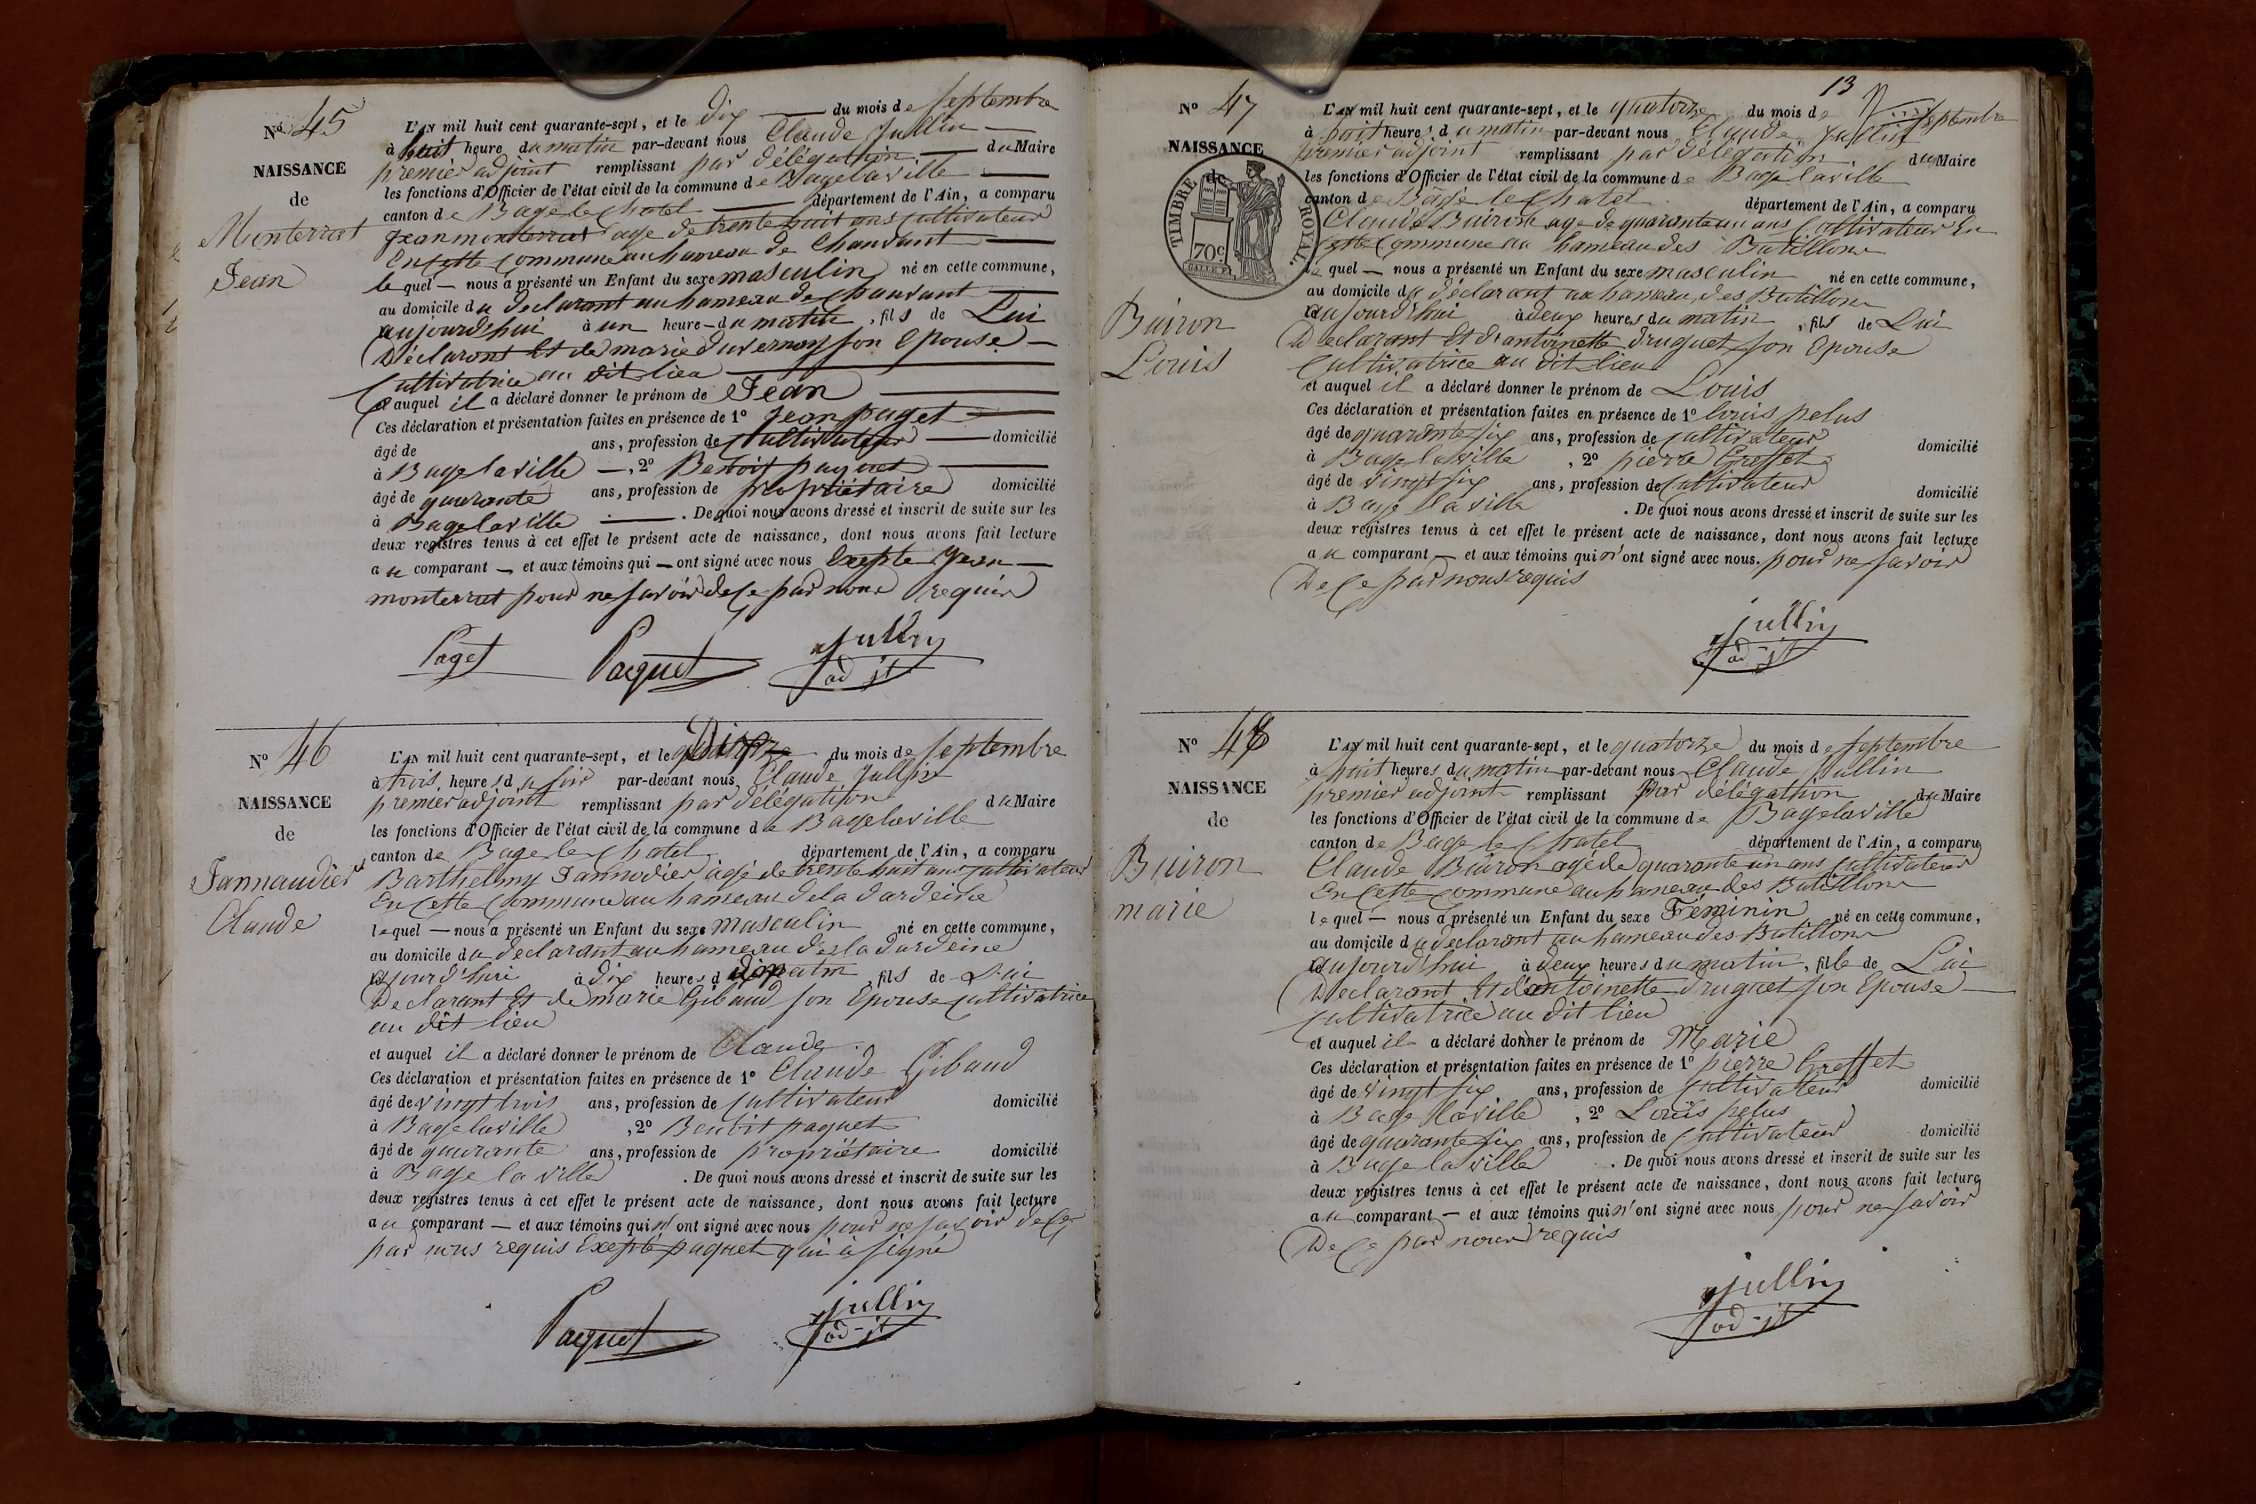 N° 45
NAISSANCE
de
Monterrat
Jean
L'AN mil huit cent quarante-sept, et le dix du mois de septembre
à huit heure du matin par-devant nous Claude Jullin
premier adjoint remplissant par délégation du Maire
les fonctions d'Officier de l'état civil de la commune de Bagelaville
canton de Bage le Chatel département de l'Ain, a comparu
Jean monterrat age de trente huit ans cultivateur
En Cette Commune au hameau de Chandant
lequel — nous a présenté un Enfant du sexe masculin né en cette commune,
au domicile du declarant au hameau de Chandant
aujourd'hui à un heure du matin, fils de Lui
Déclarant Et de marie duvernay son Epouse
Cultivatrice au dit lieu
et auquel il a déclaré donner le prénom de Jean
Ces déclaration et présentation faites en présence de 1° Jean paget
âgé de ans, profession de Cultivateur domicilié
à Bage laville, 2° Benoit paquet
âgé de quarante ans, profession de propriétaire domicilié
à Bagelaville. De quoi nous avons dressé et inscrit de suite sur les
deux registres tenus à cet effet le présent acte de naissance, dont nous avons fait lecture
au comparant — et aux témoins qui — ont signé avec nous Excepte Jean
monterrat pour ne savoir de Ce par nous requis
Paget Paquet Jullin
adjt
N° 46
NAISSANCE
de
Jannaudier
Claude
L'AN mil huit cent quarante-sept, et le Dix du mois de septembre
à trois heures du soir par-devant nous Claude Jullin
premier adjoint remplissant par délégation du Maire
les fonctions d'Officier de l'état civil de la commune de Bagelaville
canton de Bage le Chatel département de l'Ain, a comparu
Barthelmy Jannodier âgé de trente huit ans cultivateur
En Cette Commune au hameau de la dardeine
lequel — nous a présenté un Enfant du sexe masculin né en cette commune,
au domicile du declarant au hameau de la dardeine
ajourd'hui à dix heures du matin, fils de Lui
Declarant Et de marie Gibaud son Epouse cultivatrice
au dit lieu
et auquel il a déclaré donner le prénom de Claude
Ces déclaration et présentation faites en présence de 1° Claude Gibaud
âgé de vingt trois ans, profession de cultivateur domicilié
à Bage laville, 2° Benoit paquet
âgé de quarante ans, profession de propriétaire domicilié
à Bage la ville. De quoi nous avons dressé et inscrit de suite sur les
deux registres tenus à cet effet le présent acte de naissance, dont nous avons fait lecture
au comparant — et aux témoins qui n'ont signé avec nous pour ne savoir de Ce
par nous requis Excepté paquet qui à signé
Paquet Jullin
adjt
13
N° 47
NAISSANCE
de
TIMBRE ROYAL.
70c
Buiron
Louis
L'AN mil huit cent quarante-sept, et le quatorze du mois de septembre
à huit heures du matin par-devant nous Claude Jullin
premier adjoint remplissant par délégation du Maire
les fonctions d'Officier de l'état civil de la commune de Bage laville
canton de Bage le Chatel département de l'Ain, a comparu
Claude Buiron age de quarante un ans Cultivateur En
Cette Commune au hameau des Butillons
lequel — nous a présenté un Enfant du sexe masculin né en cette commune,
au domicile du déclarant au hameau des Butillons
aujourd'hui à deux heures du matin, fils de Lui
Declarant Et d'antoinette druguet son Epouse
Cultivatrice au dit lieu
et auquel il a déclaré donner le prénom de Louis
Ces déclaration et présentation faites en présence de 1° louis pelus
âgé de quarante six ans, profession de cultivateur domicilié
à Bage laville, 2° pierre Greffet
âgé de vingt six ans, profession de Cultivateur domicilié
à Bage la ville. De quoi nous avons dressé et inscrit de suite sur les
deux registres tenus à cet effet le présent acte de naissance, dont nous avons fait lecture
au comparant — et aux témoins qui n'ont signé avec nous. pour ne savoir
De Ce par nous requis
Jullin
adjt
N° 48
NAISSANCE
de
Buiron
marie
L'AN mil huit cent quarante-sept, et le quatorze du mois de septembre
à huit heures du matin par-devant nous Claude Jullin
premier adjoint remplissant par délégation du Maire
les fonctions d'Officier de l'état civil de la commune de Bagelaville
canton de Bage le Chatel département de l'Ain, a comparu
Claude Buiron agé de quarante un ans Cultivateur
En Cette Commune au hameau des Butillons
lequel — nous a présenté un Enfant du sexe Féminin né en cette commune,
au domicile du declarant au hameau des Butillons
aujourd'hui à deux heures du matin, fille de Lui
Declarant Et d'antoinette druguet son Epouse
cultivatrice au dit lieu
et auquel il a déclaré donner le prénom de Marie
Ces déclaration et présentation faites en présence de 1° pierre Greffet
âgé de vingt six ans, profession de Cultivateur domicilié
à Bage laville, 2° Louis pelus
âgé de quarante six ans, profession de Cultivateur domicilié
à Bage la ville. De quoi nous avons dressé et inscrit de suite sur les
deux registres tenus à cet effet le présent acte de naissance, dont nous avons fait lecture
au comparant — et aux témoins qui n'ont signé avec nous pour ne savoir
De Ce par nous requis
Jullin
adjt